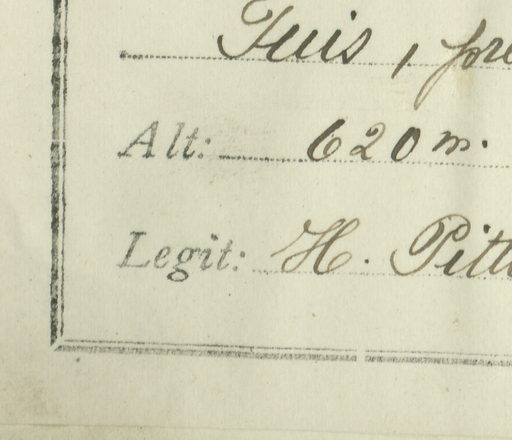 Tuis, pre
Alt: 620 m.
Legit: H. Pitti